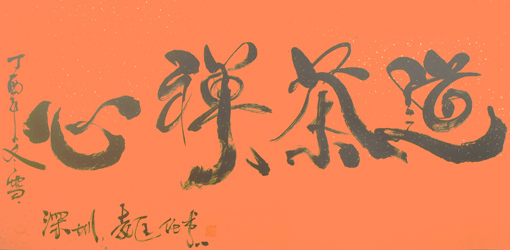 道茶禪心
丁酉年雪
深圳